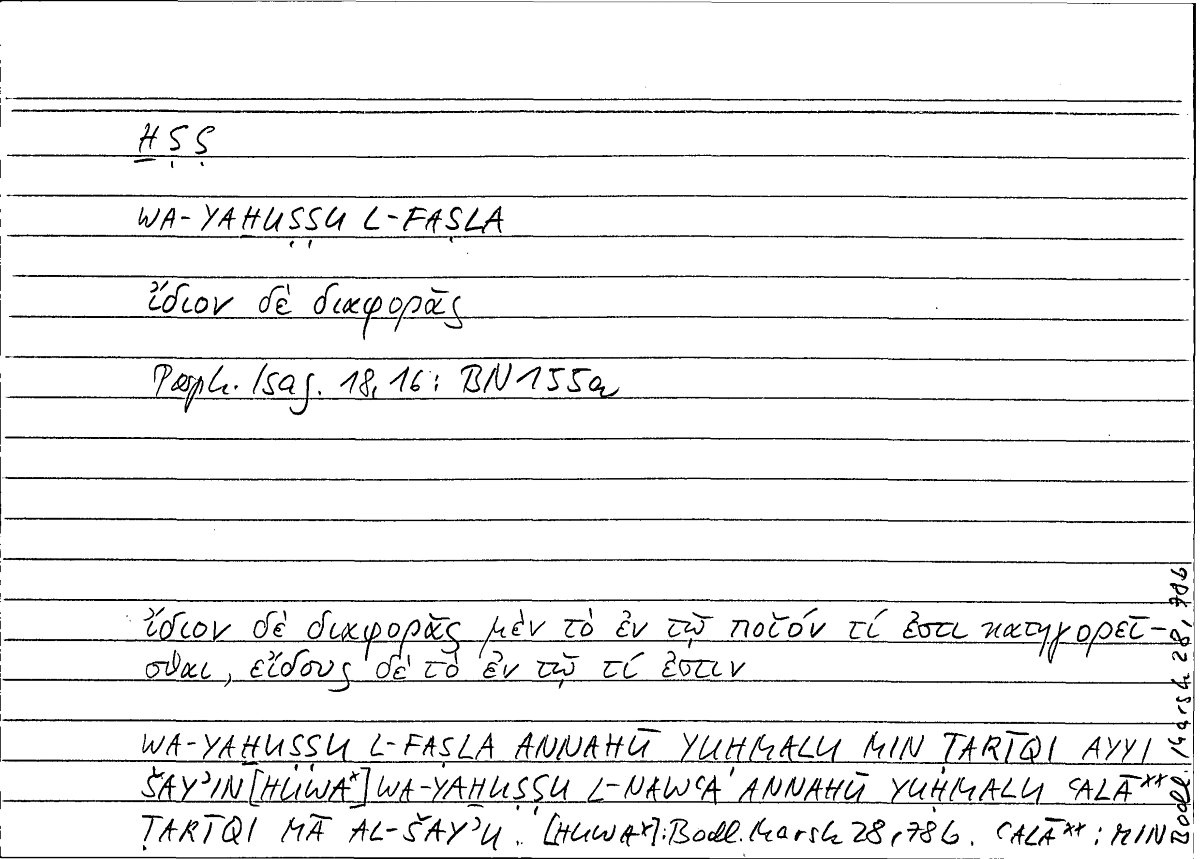 ḪṢṢ
WA-YAḪUṢṢU L-FAṢLA
ἴδιον δὲ διαφορᾶς
Porph. Isag. 18,16: BN 155a
ἴδιον δὲ διαφορᾶς μὲν τὸ ἐν τῷ ποῖόν τί ἐστι κατηγορεῖ-
σθαι, εἴδους δὲ τὸ ἐν τῷ τί ἐστιν
WA-YAḪUṢṢU L-FAṢLA ANNAHŪ YUḤMALU MIN ṬARĪQI AYYI
ŠAYʾIN [HUWA*] WA-YAḪUṢṢU L-NAWʿA ANNAHŪ YUḤMALU ʿALĀ**
ṬARĪQI MĀ AL-ŠAYʾU. [HUWA*]: Bodl. Marsh 28, 78b. ʿALĀ**: MIN
Bodl. Marsh 28, 78b